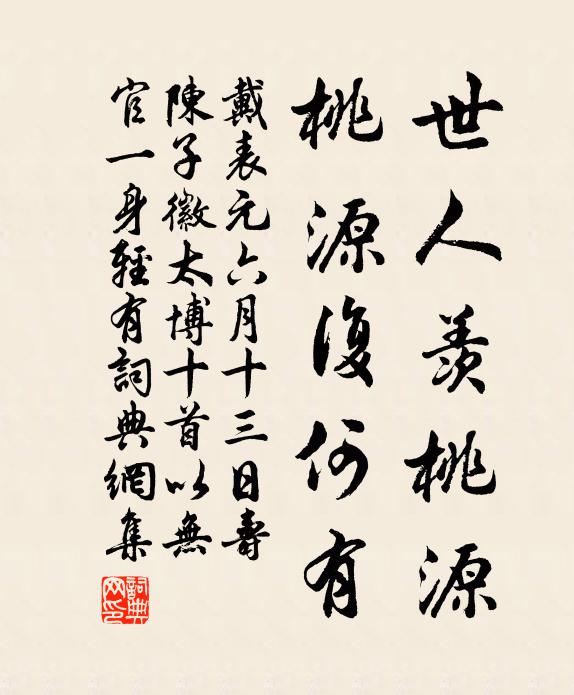 世人羡桃源
桃源復何有
戴表元六月十三日壽
陳子徽太博十首以無
官一身輕有詞典網集
詞典
网印